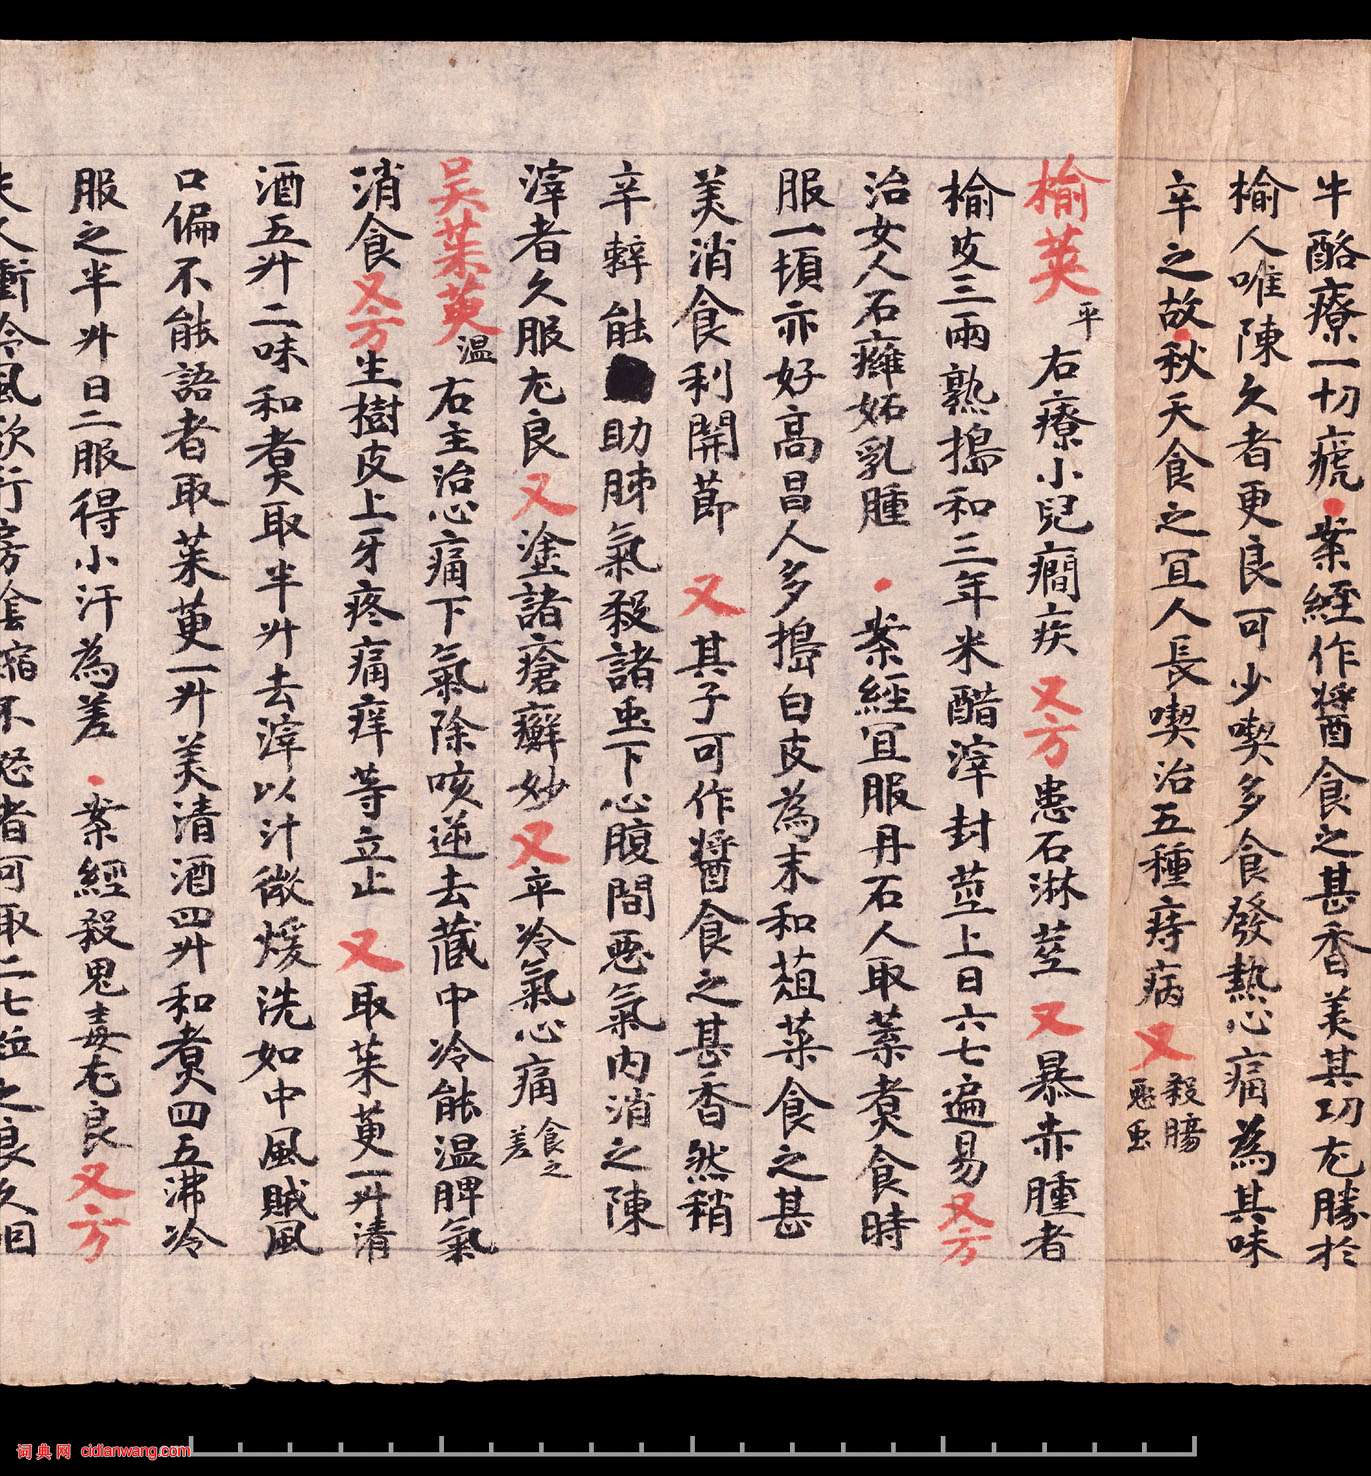 牛酪療一切瘡案經作醬食之甚香美其功尤勝於
榆人唯陳久者更良可少喫多食發熱心痛為其味
辛之故秋天食之宜人長喫治五種痔病又殺腸惡虫
榆莢平右療小兒癇疾又方患石淋莖又暴赤腫者
榆皮三兩熟搗和三年米醋滓封莖上日六七遍易又方
治女人石癰妬乳腫案經宜服丹石人取葉煮食時
服一頓亦好高昌人多搗白皮為末和葅菜食之甚
美消食利關節又其子可作醬食之甚香然稍
辛辣能助肺氣殺諸虫下心腹間惡氣內消之陳
滓者久服尤良又塗諸瘡癬妙又卒冷氣心痛食之差
吴茱萸温右主治心痛下氣除咳逆去藏中冷能温脾氣
消食又方生樹皮上牙疼痛痒等立止又取茱萸一升清
酒五升二味和煮取半升去滓以汁微煖洗如中風賊風
口偏不能語者取茱萸一升美清酒四升和煮四五沸冷
服之半升日二服得小汗為差案經殺鬼毒尤良又方
夫人衝冷風欲行房陰縮不怒者可取二七粒之良久咽
词典网 cidianwang.com